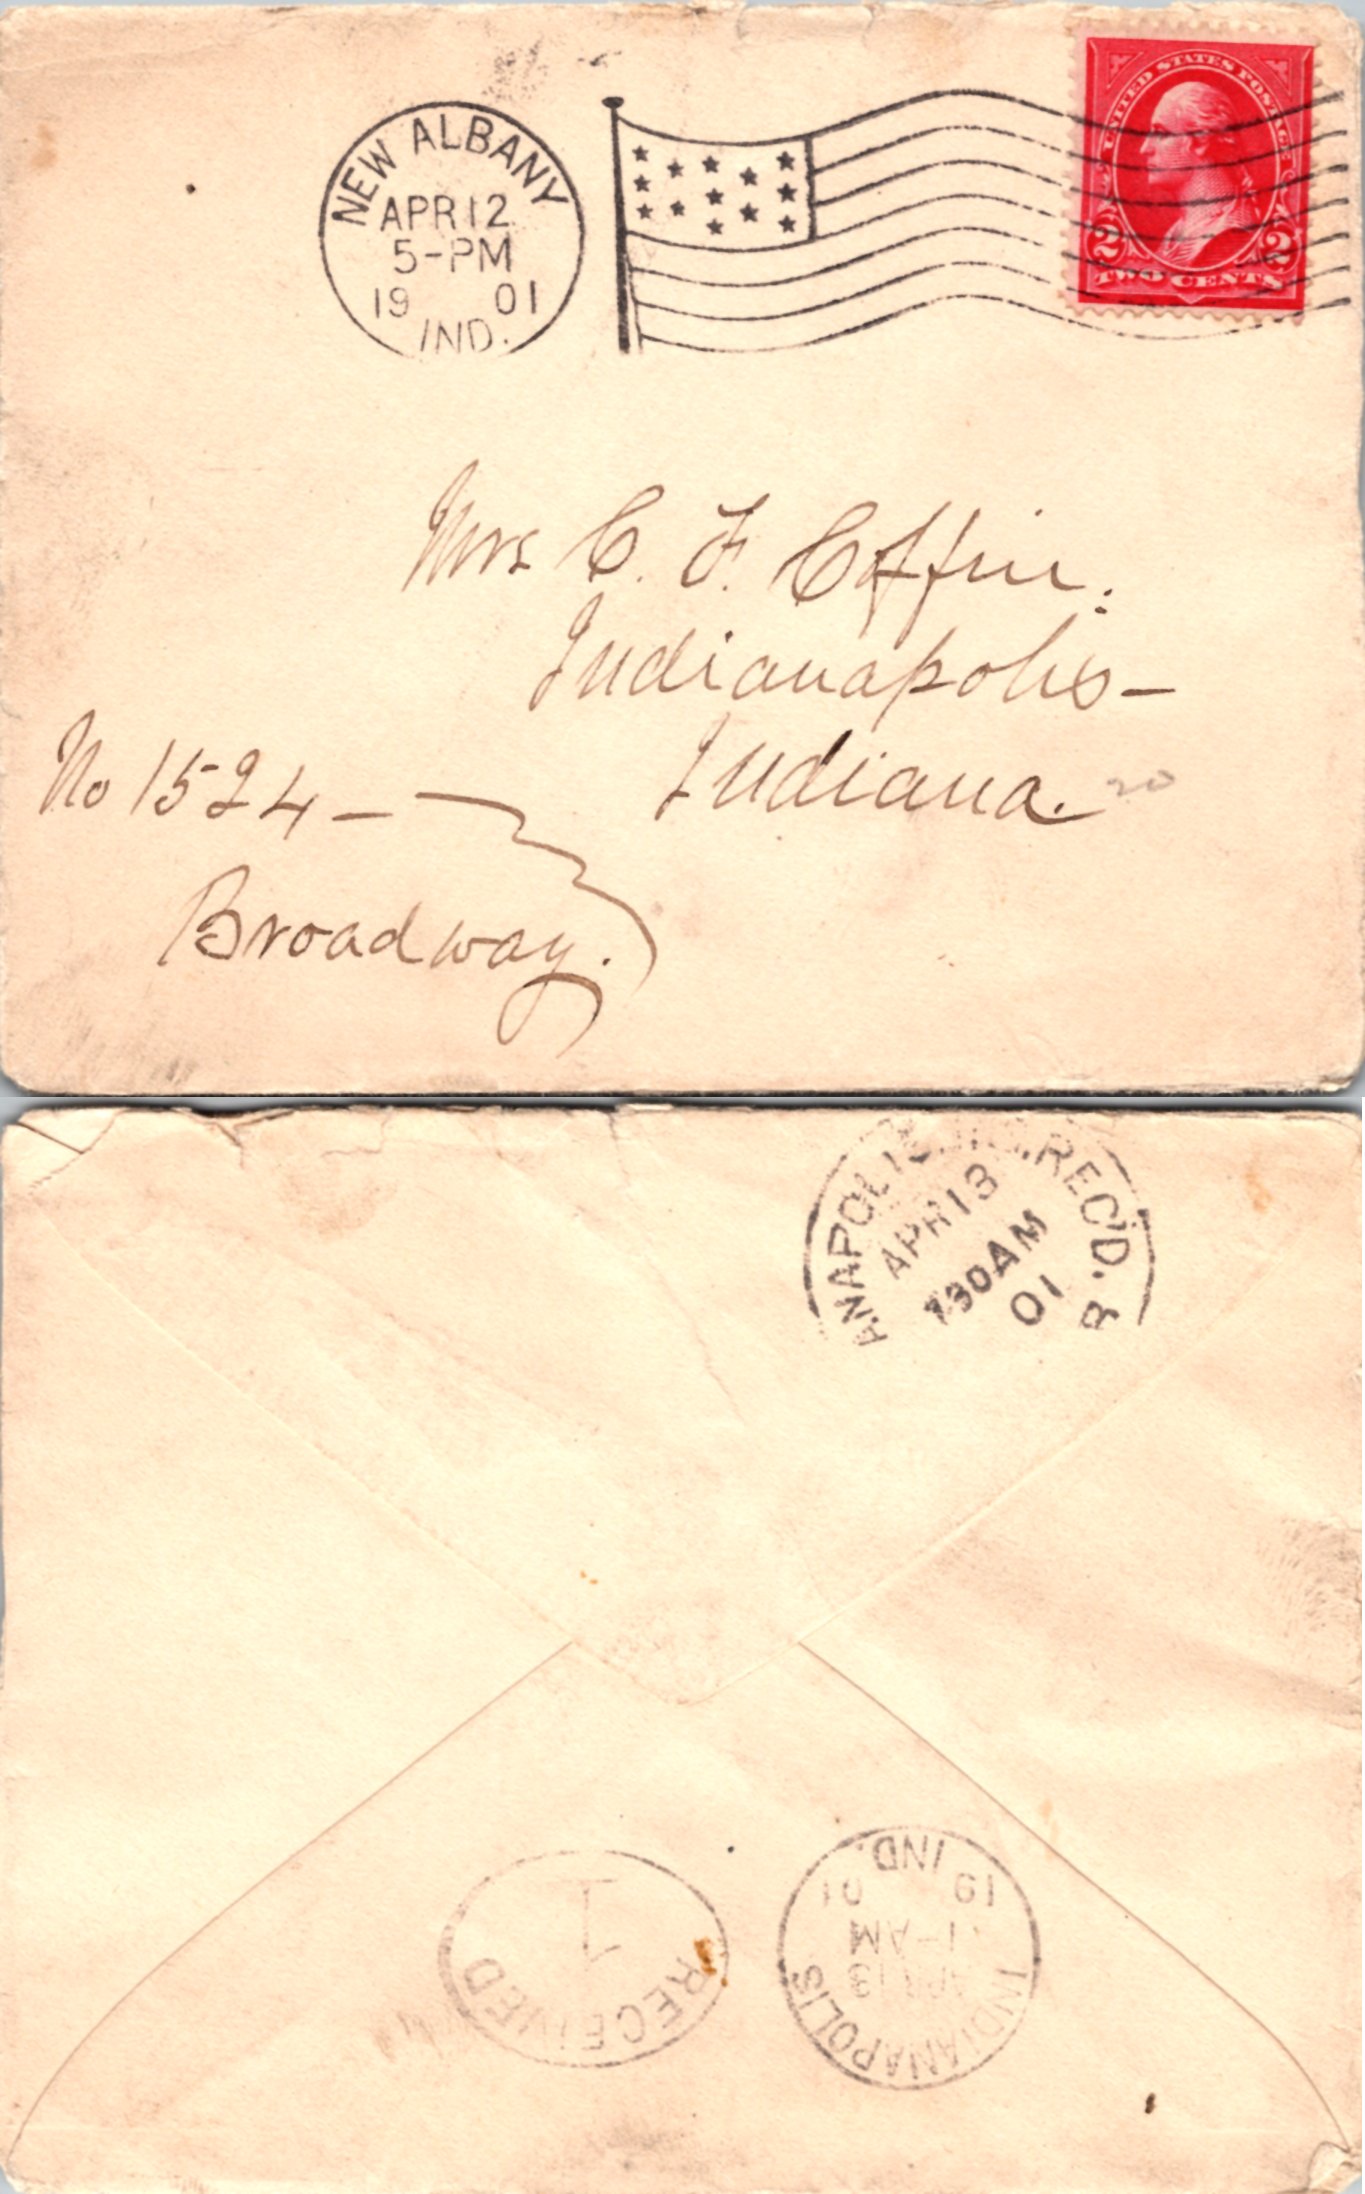 NEW ALBANY
APR 12
5-PM
19 01
IND.
UNITED STATES POSTAGE
2 2
TWO CENTS
Mrs C. F. Coffin.
Indianapolis-
Indiana. 20
No 1524-
Broadway.
ANAPOLIS, REC'D. 8
APR 13
730AM
01
RECEIVED
1
INDIANAPOLIS
APR 13
1-AM
19 01
IND.